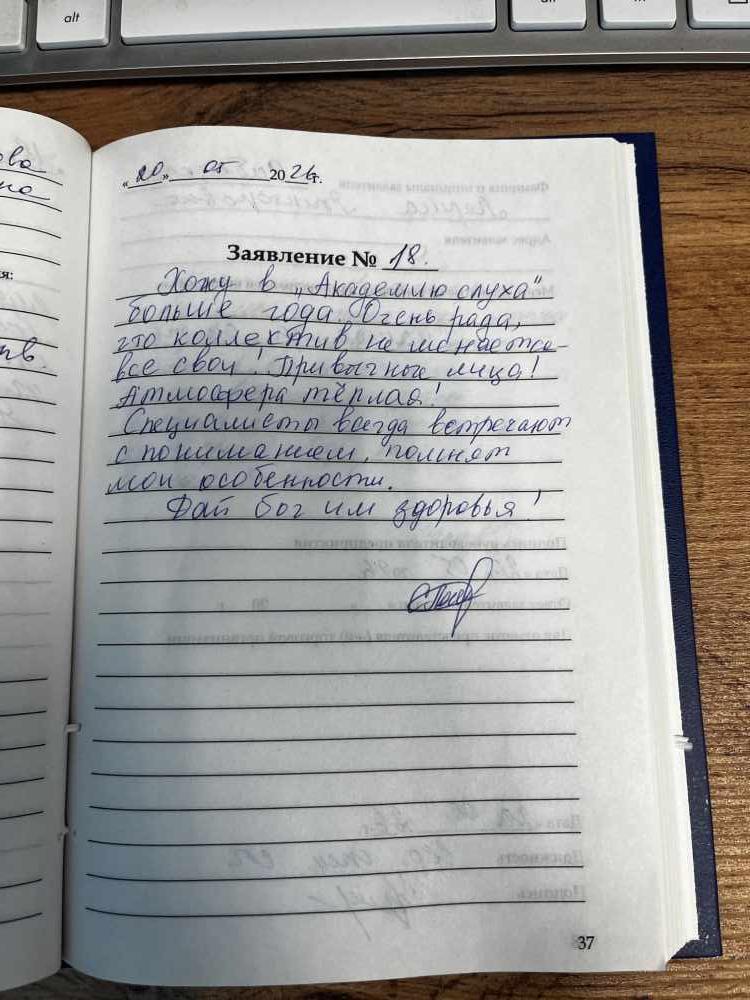 alt
alt
ова
на
я:
«20» 05 2026г.
Заявление № 18.
Хожу в „Академию слуха"
больше года. Очень рада,
что коллектив не меняется-
все свои! Привычные лица!
Атмосфера тёплая!
Специалисты всегда встречают
с пониманием, помнят
мои особенности.
Дай бог им здоровья!
37